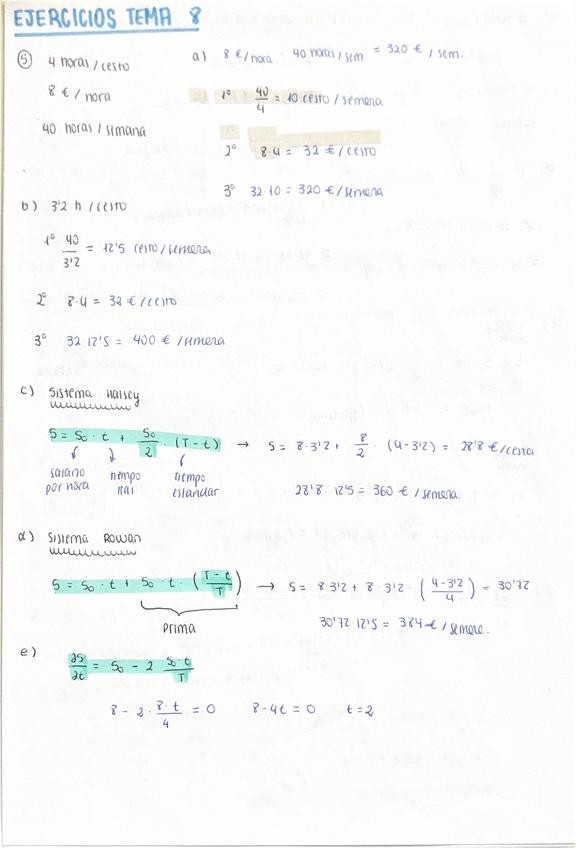 EJERCICIOS TEMA 8
⑤ 4 horas/cesto
8 €/hora
40 horas/semana
a) 8 €/hora · 40 horas/sem = 320 €/sem.
1º 40/4 = 10 cesto/semana
2º 8·4 = 32 €/cesto
3º 32·10 = 320 €/semana
b) 3'2 h/cesto
1º 40/3'2 = 12'5 cesto/semana
2º 8·4 = 32 €/cesto
3º 32·12'5 = 400 €/semana
c) Sistema Halsey
S = S₀ · t + S₀/2 · (T - t) → S = 8·3'2 + 8/2 · (4-3'2) = 28'8 €/cesta
salario por hora
tiempo real
tiempo estandar
28'8 · 12'5 = 360 €/semana.
d) Sistema Rowan
S = S₀ · t + S₀ · t · (T-t/T) → S = 8·3'2 + 8·3'2 · (4-3'2/4) = 30'72
Prima
30'72·12'5 = 384 €/semana.
e) ∂S/∂t = S₀ - 2 S₀·t/T
8 - 2 · 8·t/4 = 0 8-4t = 0 t = 2